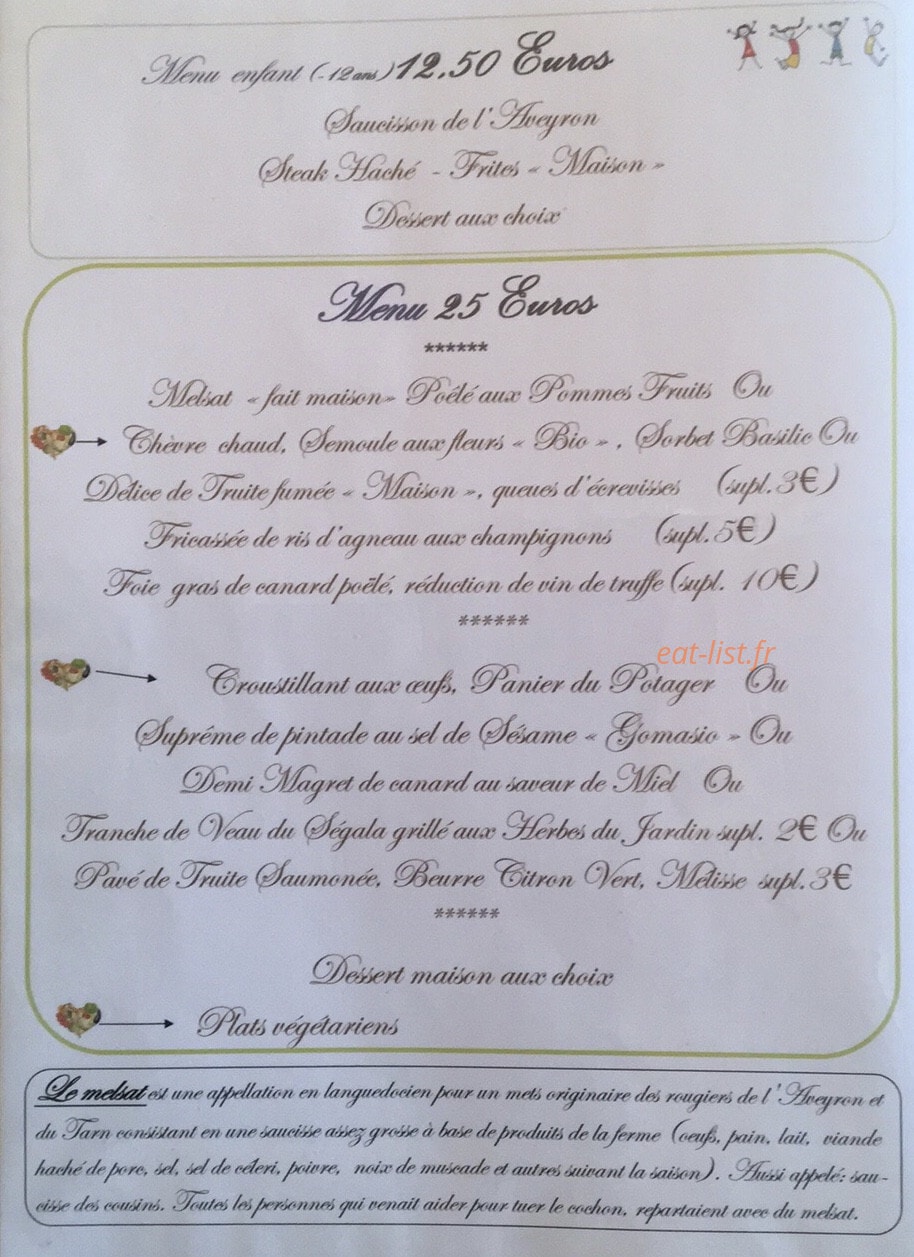 Menu enfant (-12ans) 12.50 Euros
Saucisson de l'Aveyron
Steak Haché - Frites « Maison »
Dessert aux choix
Menu 25 Euros
******
Melsat « fait maison» Poêlé aux Pommes Fruits Ou
Chèvre chaud, Semoule aux fleurs « Bio » , Sorbet Basilic Ou
Délice de Truite fumée « Maison », queues d'écrevisses (supl. 3€)
Fricassée de ris d'agneau aux champignons (supl. 5€)
Foie gras de canard poëlé, réduction de vin de truffe (supl. 10€)
******
eat-list.fr
Croustillant aux œufs, Panier du Potager Ou
Supréme de pintade au sel de Sésame « Gomasio » Ou
Demi Magret de canard au saveur de Miel Ou
Tranche de Veau du Ségala grillé aux Herbes du Jardin supl. 2€ Ou
Pavé de Truite Saumonée, Beurre Citron Vert, Mélisse supl. 3€
******
Dessert maison aux choix
Plats végétariens
Le melsat est une appellation en languedocien pour un mets originaire des rougiers de l'Aveyron et
du Tarn consistant en une saucisse assez grosse à base de produits de la ferme (oeufs, pain, lait, viande
haché de porc, sel, sel de céleri, poivre, noix de muscade et autres suivant la saison). Aussi appelé: sau-
cisse des cousins. Toutes les personnes qui venait aider pour tuer le cochon, repartaient avec du melsat.